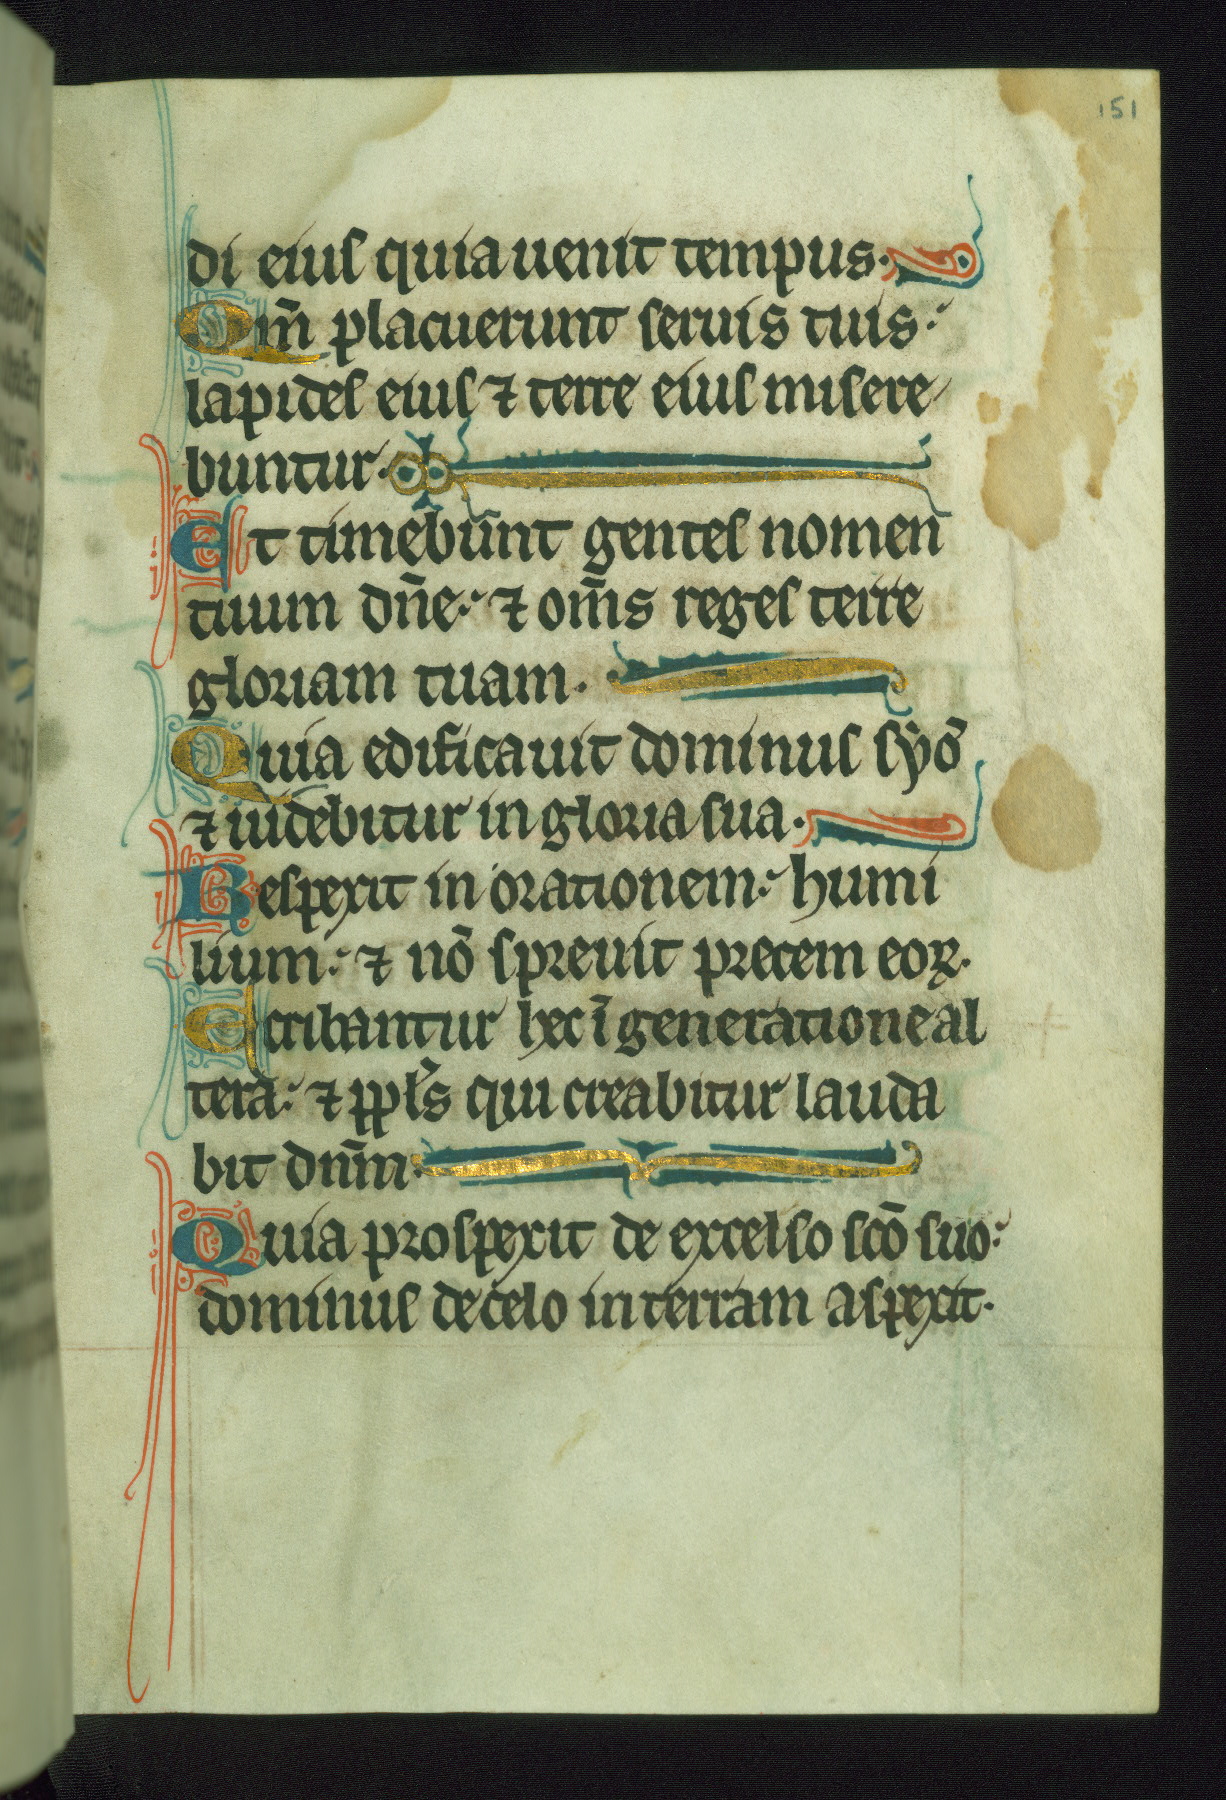 151
di eius quia uenit tempus.
Qm̄ placuerunt seruis tuis:
lapides eius ⁊ terre eius misere
buntur.
Et timebunt gentes nomen
tuum dn̄e: ⁊ om̄s reges terre
gloriam tuam.
Quia edificauit dominus syō
⁊ uidebitur in gloria sua.
Respexit in orationem: humi
lium: ⁊ nō spreuit precem eoꝝ.
Scribantur hec ī generatione al
tera: ⁊ ppl̄s qui creabitur lauda
bit dnm̄.
Quia prospexit de excelso scō suo:
dominus de celo in terram aspexit.